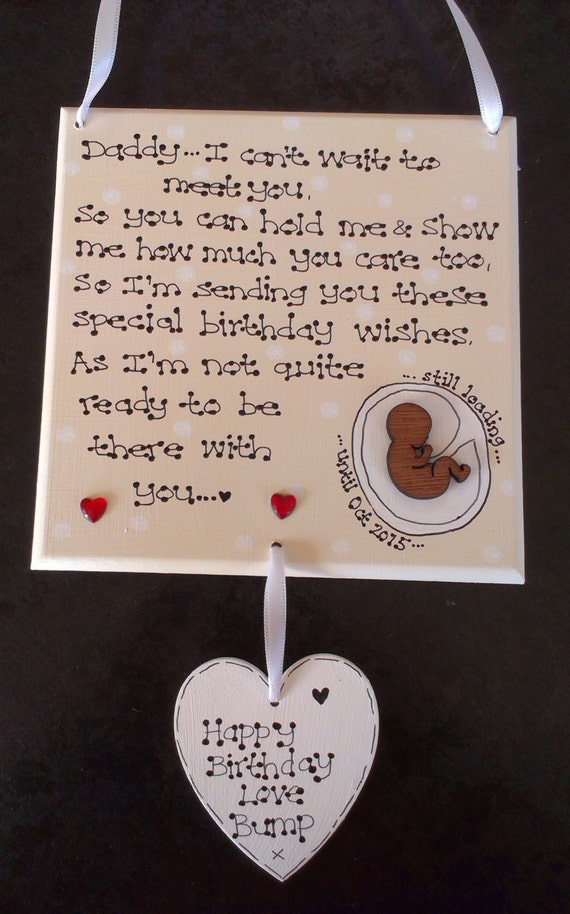 Daddy... I can't wait to
meet you,
So you can hold me & Show
me how much you care too,
So I'm sending you these
special birthday wishes,
As I'm not quite
ready to be
there with
you....♥
... still loading...
... until Oct 2015...
Happy
Birthday
Love
Bump
x